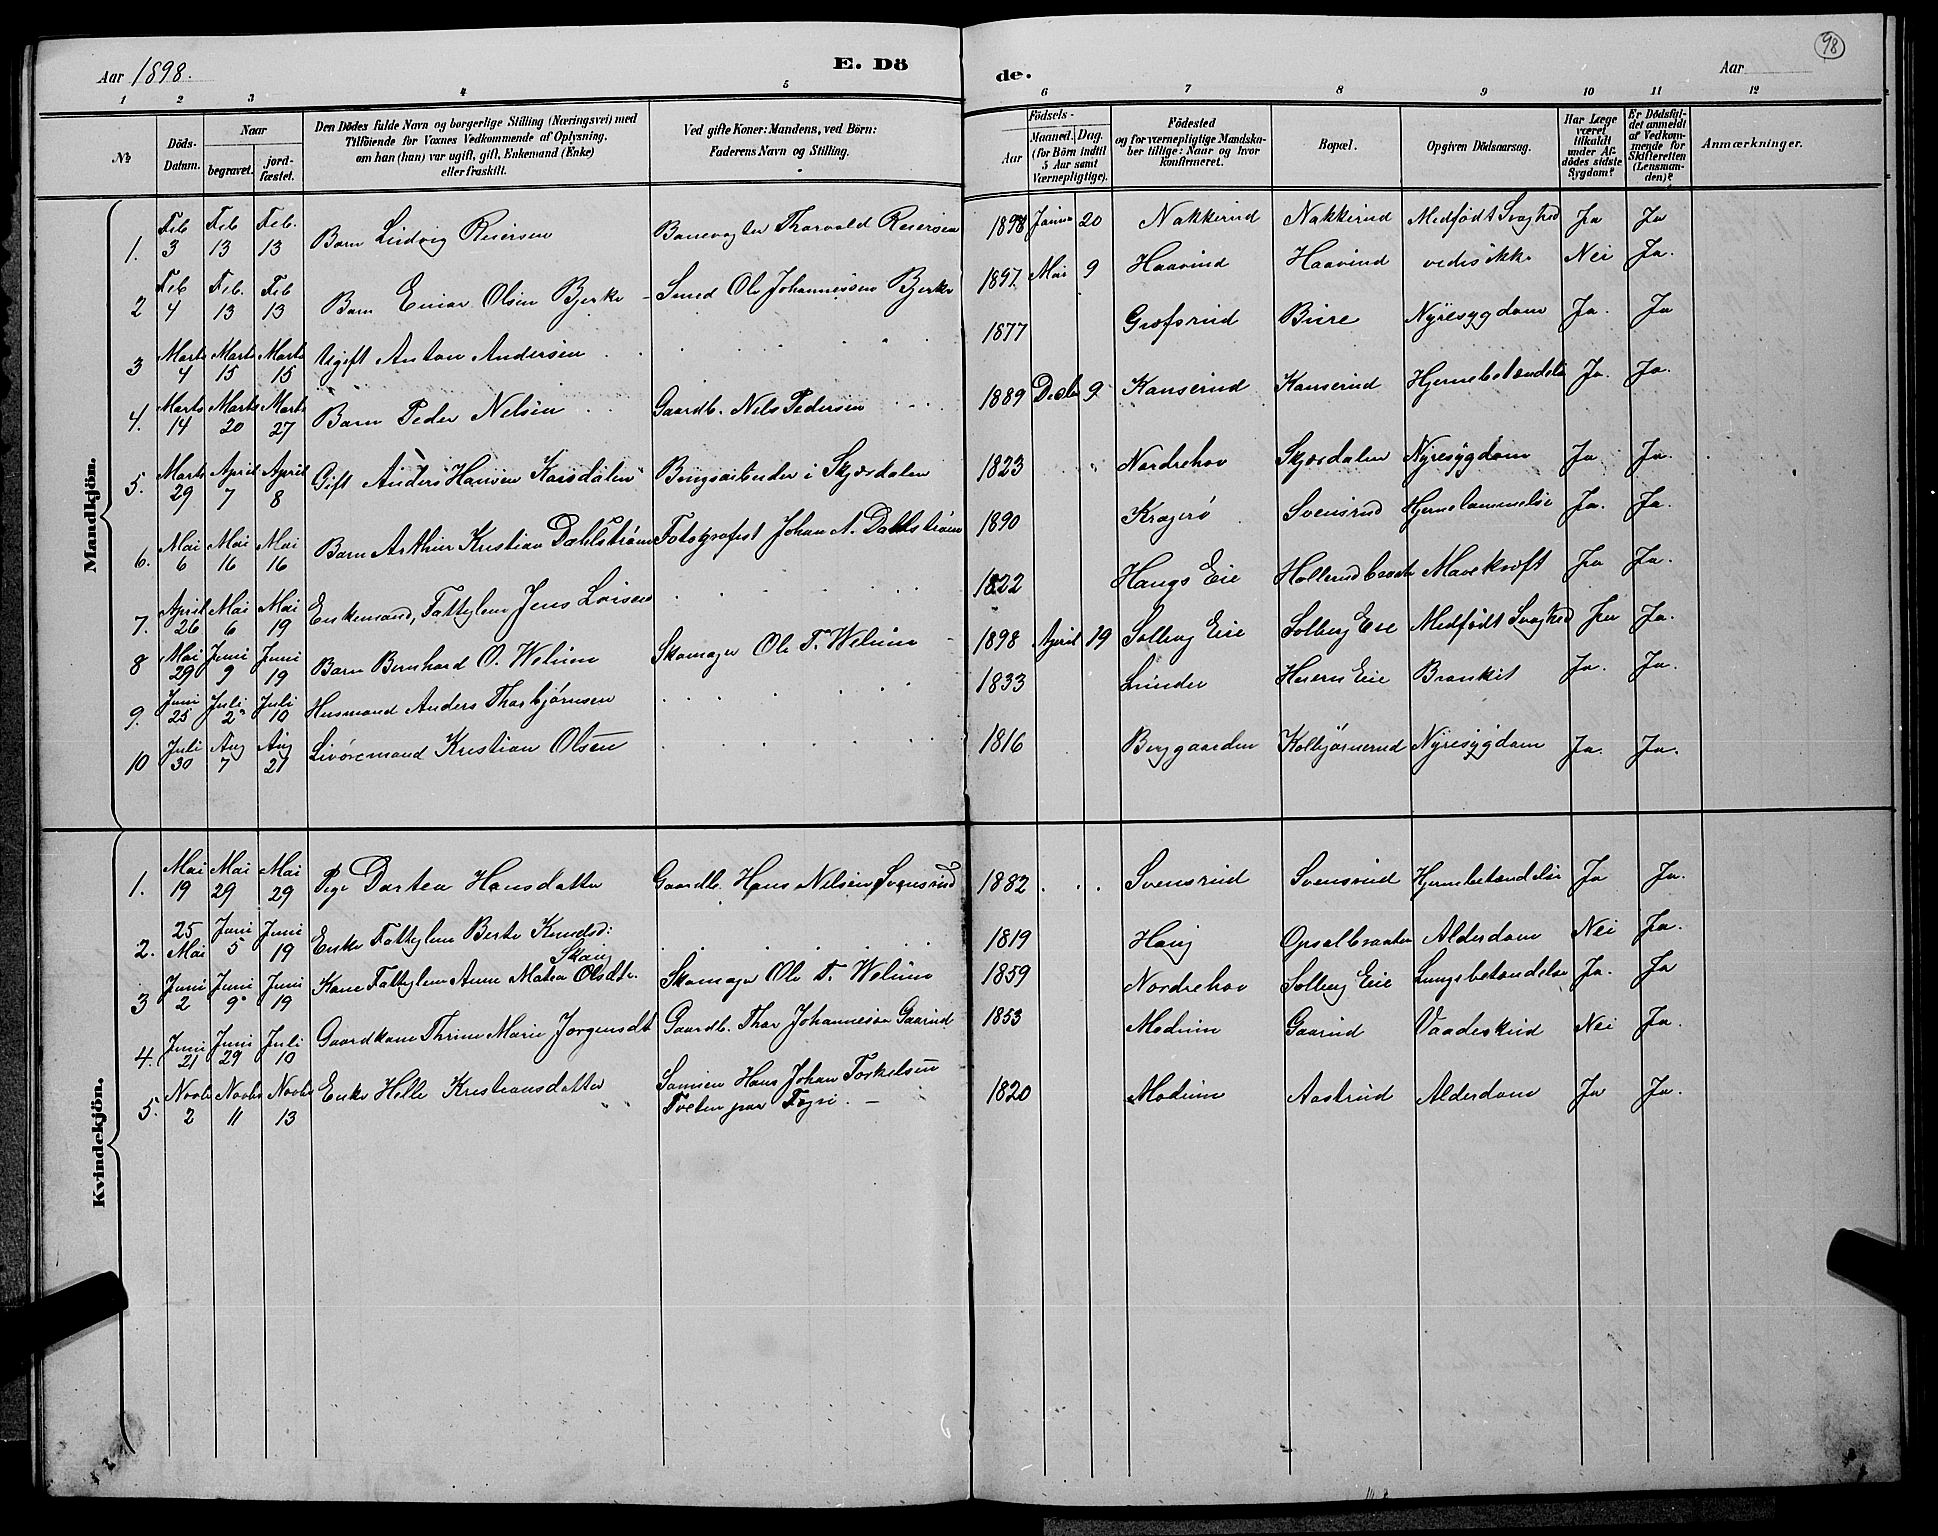 98
Aar 1898. E. Dö de. Aar
1 2 3 4 5 6 7 8 9 10 11 12
No Döds-Datum. Naar begravet. jord-fæstet. Den Dödes fulde Navn og borgerlige Stilling (Næringsvei) med Tilföiende for Voxnes Vedkommende af Oplysning, om han (hun) var ugift, gift, Enkemand (Enke) eller fraskilt. Ved gifte Koner: Mandens, ved Börn: Faderens Navn og Stilling. Födsels- Aar Maaned. Dag. (for Börn indtil 5 Aar samt Værnepligtige). Födested og for værnepligtige Mandskaber tillige: Naar og hvor konfirmeret. Bopæl. Opgiven Dödsaarsag. Har Læge været tilkaldt under Afdödes sidste Sygdom? Er Dödsfaldet anmeldt af Vedkommende for Skifteretten (Lensmanden)? Anmærkninger.
Mandkjön.
1. Feb 3 Feb 13 Feb. 13 Barn Ludvig Reiersen Banevogter Thorvald Reiersen 1898 Janua 20 Nakkerud Nakkerud Medfödt Svaghed Ja Ja
2 Feb 4 Feb. 13 Feb 13 Barn Einar Olsen Bjerke - Smed Ole Johannessen Bjerke 1897 Mai 9 Haavind Haavind vides ikke Nei Ja.
3 Marts 4 Marts 15 Marts 15 Ugift Anton Andersen 1877 Græfsrud Bure Nyresygdom Ja. Ja
4. Marts 14 Marts 20 Marts 27 Barn Peder Nelsen Gaardb. Nels Pedersen 1889 Decbr 9 Kanserud Kanserud Hjernebetændelse Ja. Ja.
5. Marts 29 April 7 April 8 Gift Anders Hansen Karsdalen i Skjærdalen 1823 Nordrehov Skjærdalen Nyresygdom Ja Ja.
6. Mai 6 Mai 16 Mai 16 Barn Arthur Kristian Dahlstrøm Fotografist Johan A. Dahlstrøm 1890 Kragerø Svensrud Hjernelammelse Ja. Ja.
7. April 26 Mai 6 Mai 19 Enkemand, Fattiglem Jens Larsen 1822 Haugs Eie Hollerudbraaten Mavekræft Ja Ja.
8 Mai 29 Juni 9 Juni 19 Barn Bernhard O. Welum Skomager Ole T. Welum - 1898 April 19 Solberg Eie Solberg Eie Medfödt Svaghed Ja Ja.
9. Juni 25 Juli 2 Juli 10 Husmand Anders Thorbjørnsen 1833 Lunder Hurum Eie Bronkit Ja. Ja.
10 Juli 30 Aug 7 Aug 21 Livøremand Kristian Olsen 1816 Berggaarden Kolbjørnerud Nyresygdom Ja. Ja.
Kvindekjön.
1. Mai 19 Mai 29 Mai 29 Pige Dortea Hansdatter Gaardb. Hans Nilsen Svensrud 1882 Svensrud Svensrud Hjernebetændelse Ja Ja.
2. 25 Mai Juni 5 Juni 19 Enke Fattiglem Berte Knudsd: 1819 Haug Opsalbraaten Alderdom Nei Ja.
3 Juni 2 Juni 9 Juni 19 Kone Fattiglem Anne Matea Olsdtr. Skaug Skomager Ole T. Welum 1859 Nordrehov Solberg Eie Lungebetændelse Ja. Ja
4. Juni 21 Juni 29 Juli 10 Gaardkone Thrine Marie Jørgensdt Gaardb. Thor Johannesen Gaarud 1853 Modum Gaarud Vaadeskud Nei Ja.
5. Novbr 2 Novbr 11 Novbr 13 Enke Helle Kristiansdatter Hans Johan Torkelsen paa 1820 Modum Aastrud Alderdom Ja Ja.